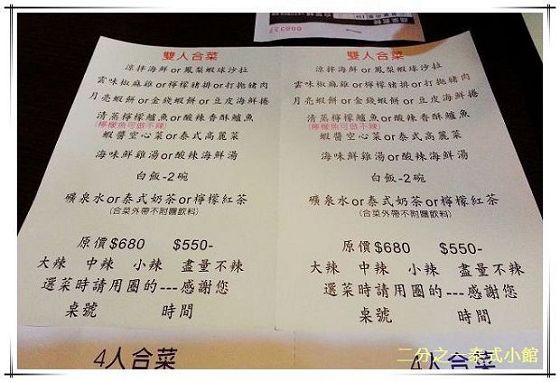 雙人合菜
涼拌海鮮or鳳梨蝦球沙拉
雲味椒麻雞or檸檬豬排or打拋豬肉
月亮蝦餅or金錢蝦餅or豆皮海鮮捲
清蒸檸檬鱸魚or酸辣香酥鱸魚
(檸檬魚可做不辣)
蝦醬空心菜or泰式高麗菜
海味鮮雞湯or酸辣海鮮湯
白飯-2碗
礦泉水or泰式奶茶or檸檬紅茶
(合菜外帶不附贈飲料)
原價$680 $550-
大辣 中辣 小辣 盡量不辣
選菜時請用圈的---感謝您
桌號 時間
4人合菜
雙人合菜
涼拌海鮮or鳳梨蝦球沙拉
雲味椒麻雞or檸檬豬排or打拋豬肉
月亮蝦餅or金錢蝦餅or豆皮海鮮捲
清蒸檸檬鱸魚or酸辣香酥鱸魚
(檸檬魚可做不辣)
蝦醬空心菜or泰式高麗菜
海味鮮雞湯or酸辣海鮮湯
白飯-2碗
礦泉水or泰式奶茶or檸檬紅茶
(合菜外帶不附贈飲料)
原價$680 $550-
大辣 中辣 小辣 盡量不辣
選菜時請用圈的---感謝您
桌號 時間
4人合菜
二分之一泰式小館